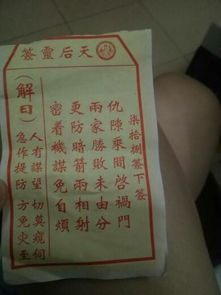 天后靈簽
柒拾捌簽下簽
仇隙乘間啓禍門
兩家勝敗未由分
更防暗箭兩相射
密着機謀免自煩
(解曰)
人有謀望切莫窺伺
急作提防方免災至